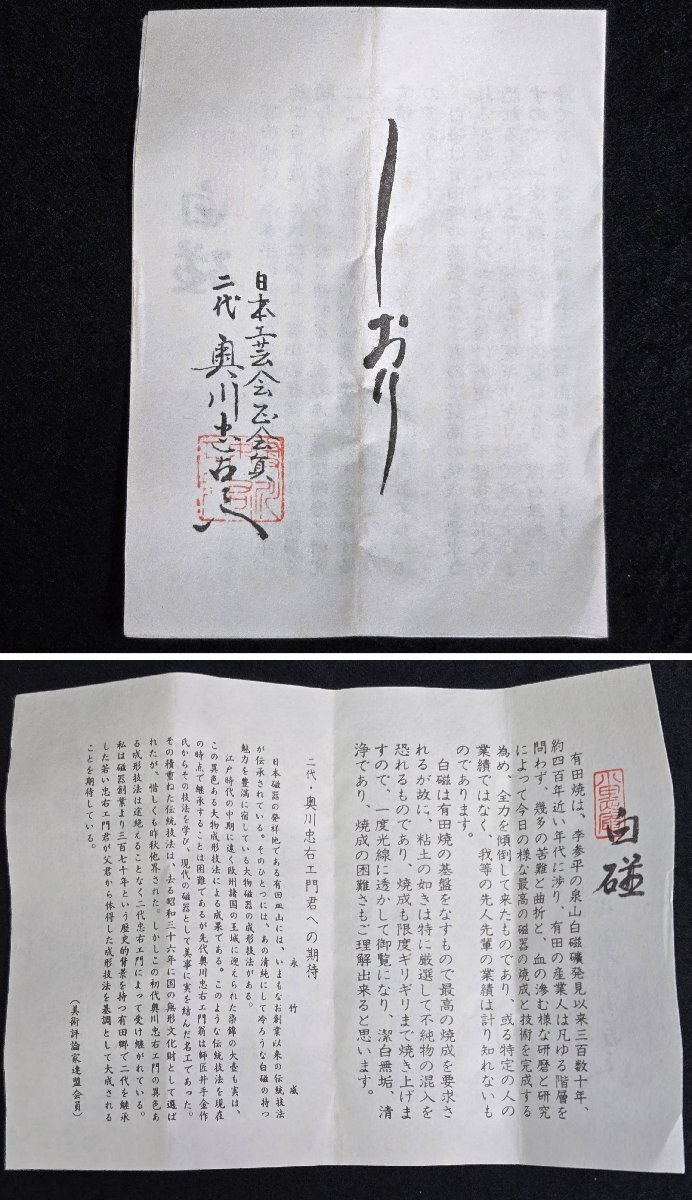 しおり
日本工芸会正会員
二代 奥川忠右エ門
白磁
有田焼は、李参平の泉山白磁礦発見以来三百数十年、
約四百年近い年代に渉り、有田の産業人は凡ゆる階層を
問わず、幾多の苦難と曲折と、血の滲む様な研磨と研究
によって今日の様な最高の磁器の焼成と技術を完成する
為め、全力を傾倒して来たものであり、或る特定の人の
業績ではなく、我等の先人先輩の業績は計り知れないも
のであります。
白磁は有田焼の基盤をなすもので最高の焼成を要求さ
れるが故に、粘土の如きは特に厳選して不純物の混入を
恐れるものであり、焼成も限度ギリギリまで焼き上げま
すので、一度光線に透かして御覧になり、潔白無垢、清
浄であり、焼成の困難さもご理解出来ると思います。
二代・奥川忠右エ門君への期待
永竹 威
日本磁器の発祥地である有田皿山には、いまもなお創業以来の伝統技法
が伝承されている。そのひとつには、あの清純にして冷ろうな白磁の持つ
魅力を豊満に宿している大物磁器の成形技法がある。
江戸時代の中期に遠く欧州諸国の王城に迎えられた染錦の大壷も実は、
この異色ある大物成形技法による成果である。このような伝統技法を現在
の時点で継承することは困難であるが先代奥川忠右エ門翁は師匠井手金作
氏からその技法を学び、現代の磁器として美事に実を結んだ名工であった。
その積重ねた伝統技法は、去る昭和三十六年に国の無形文化財として選ば
れたが、惜しくも昨秋他界された。しかしこの初代奥川忠右エ門の異色あ
る成形技法は途絶えることなく二代忠右エ門によって受け継がれている。
私は磁器創業より三百七十年という歴史的背景を持つ有田郷で二代を継承
した若い忠右エ門君が父君から体得した成形技法を基調として大成される
ことを期待している。
(美術評論家連盟会員)